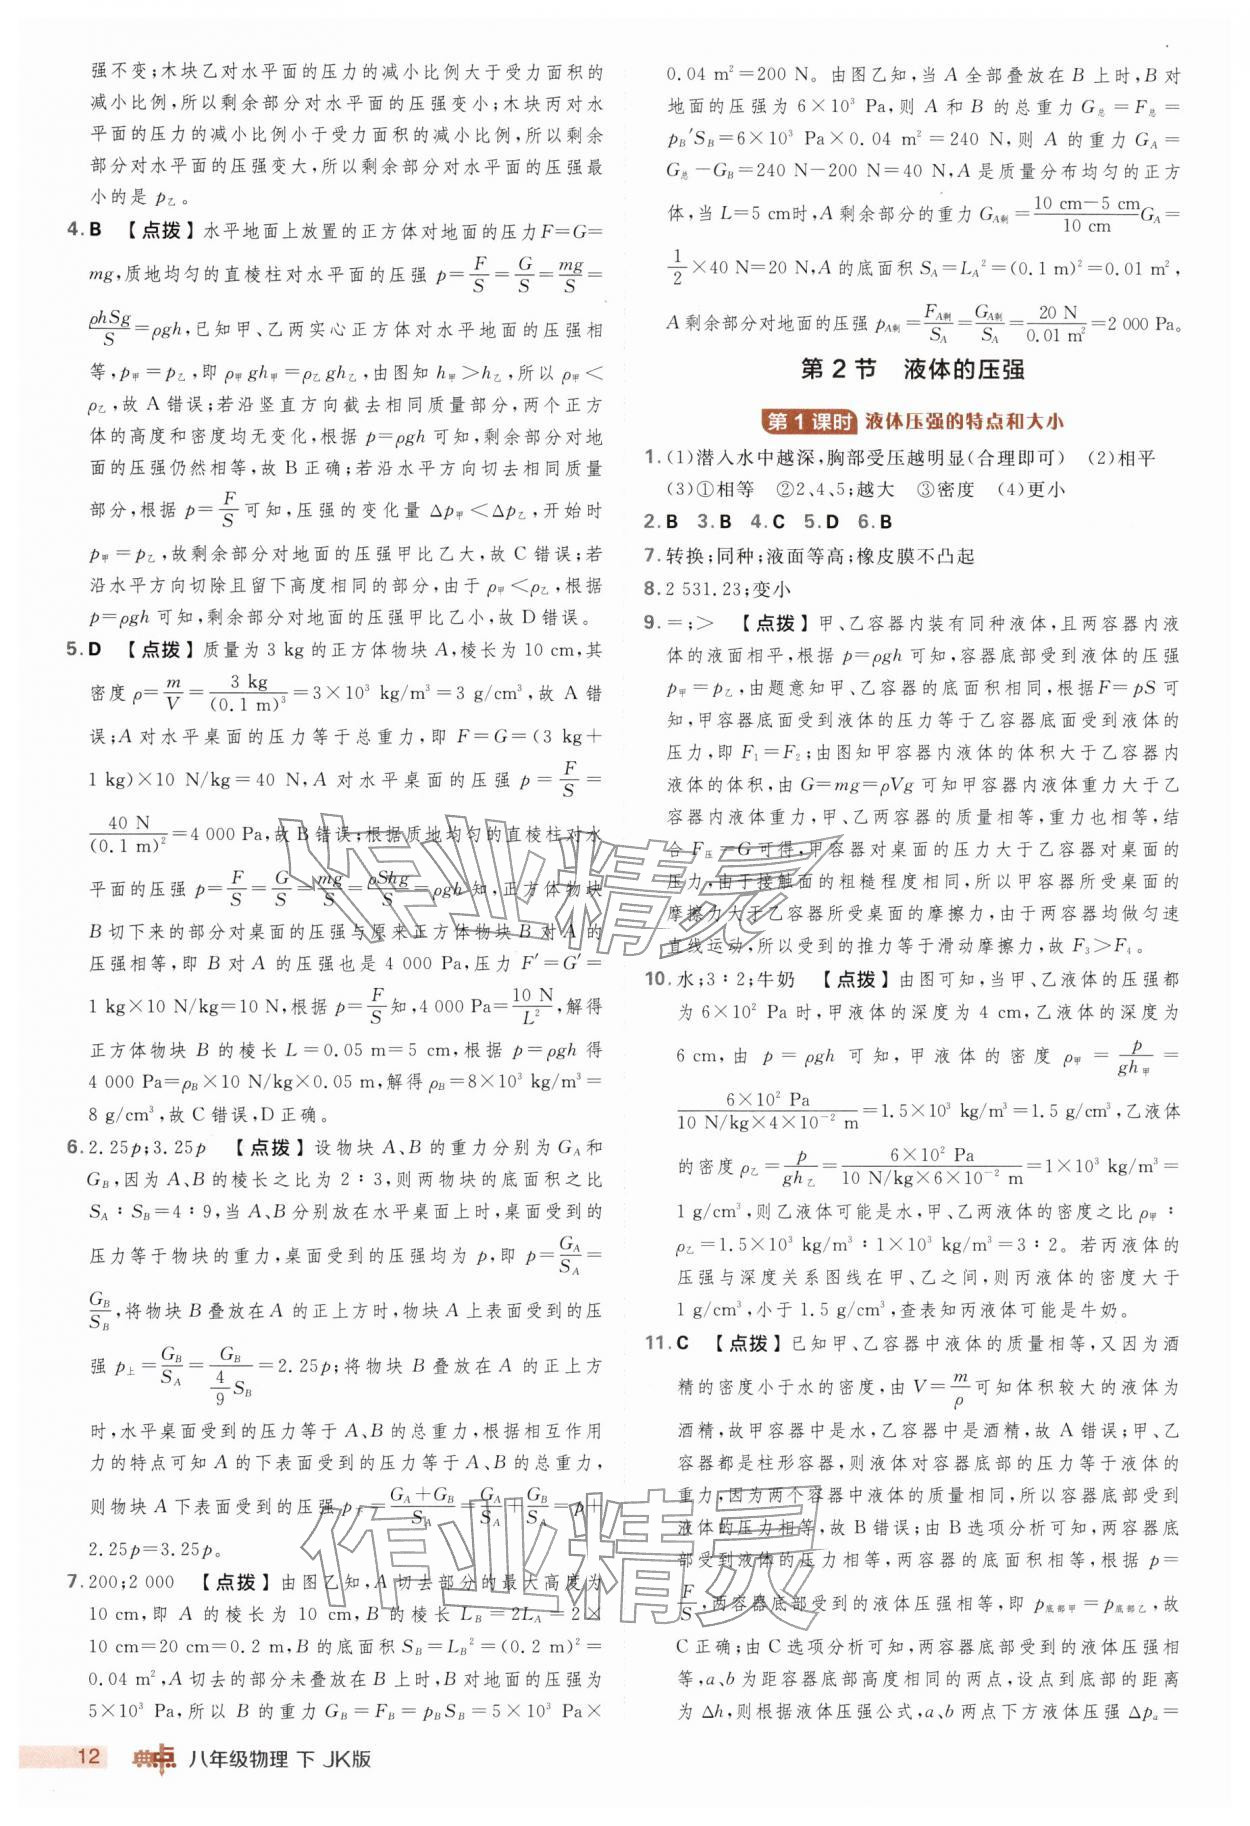 强不变;木块乙对水平面的压力的减小比例大于受力面积的
减小比例,所以剩余部分对水平面的压强变小;木块丙对水
平面的压力的减小比例小于受力面积的减小比例,所以剩余
部分对水平面的压强变大,所以剩余部分对水平面的压强最
小的是 p乙。
4. B 【点拨】水平地面上放置的正方体对地面的压力F=G=
mg,质地均匀的直棱柱对水平面的压强 p=F/S=G/S=mg/S=
ρhSg/S=ρgh,已知甲、乙两实心正方体对水平地面的压强相
等,p甲=p乙,即 ρ甲gh甲=ρ乙gh乙,由图知 h甲>h乙,所以 ρ甲<
ρ乙,故 A 错误;若沿竖直方向截去相同质量部分,两个正方
体的高度和密度均无变化,根据 p=ρgh 可知,剩余部分对地
面的压强仍然相等,故 B 正确;若沿水平方向切去相同质量
部分,根据 p=F/S 可知,压强的变化量 Δp甲<Δp乙,开始时
p甲=p乙,故剩余部分对地面的压强甲比乙大,故 C 错误;若
沿水平方向切除且留下高度相同的部分,由于 ρ甲<ρ乙,根据
p=ρgh 可知,剩余部分对地面的压强甲比乙小,故 D 错误。
5. D 【点拨】质量为 3 kg 的正方体物块 A,棱长为 10 cm,其
密度 ρ=m/V=3 kg/(0.1 m)³=3×10³ kg/m³=3 g/cm³,故 A 错
误;A 对水平桌面的压力等于总重力,即 F=G=(3 kg+
1 kg)×10 N/kg=40 N,A 对水平桌面的压强 p=F/S=
40 N/(0.1 m)²=4 000 Pa,故 B 错误;根据质地均匀的直棱柱对水
平面的压强 p=F/S=G/S=mg/S=ρShg/S=ρgh 知,正方体物块
B 切下来的部分对桌面的压强与原来正方体物块 B 对 A 的
压强相等,即 B 对 A 的压强也是 4 000 Pa,压力 F′=G′=
1 kg×10 N/kg=10 N,根据 p=F/S知,4 000 Pa=10 N/L²,解得
正方体物块 B 的棱长 L=0.05 m=5 cm,根据 p=ρgh 得
4 000 Pa=ρB×10 N/kg×0.05 m,解得 ρB=8×10³ kg/m³=
8 g/cm³,故 C 错误,D 正确。
6. 2.25p;3.25p 【点拨】设物块 A、B 的重力分别为 GA 和
GB,因为 A、B 的棱长之比为 2∶3,则两物块的底面积之比
SA∶SB=4∶9,当 A、B 分别放在水平桌面上时,桌面受到的
压力等于物块的重力,桌面受到的压强均为 p,即 p=GA/SA=
GB/SB,将物块 B 叠放在 A 的正上方时,物块 A 上表面受到的压
强 p上=GB/SA=GB/(4/9 SB)=2.25p;将物块 B 叠放在 A 的正上方
时,水平桌面受到的压力等于 A、B 的总重力,根据相互作用
力的特点可知 A 的下表面受到的压力等于 A、B 的总重力,
则物块 A 下表面受到的压强 p下=(GA+GB)/SA=GA/SA+GB/SA=p+
2.25p=3.25p。
7. 200;2 000 【点拨】由图乙知,A 切去部分的最大高度为
10 cm,即 A 的棱长为 10 cm,B 的棱长 LB=2LA=2×
10 cm=20 cm=0.2 m,B 的底面积 SB=LB²=(0.2 m)²=
0.04 m²,A 切去的部分未叠放在 B 上时,B 对地面的压强为
5×10³ Pa,所以 B 的重力 GB=FB=pBSB=5×10³ Pa×
0.04 m²=200 N。由图乙知,当 A 全部叠放在 B 上时,B 对
地面的压强为 6×10³ Pa,则 A 和 B 的总重力 G总=F总=
pB′SB=6×10³ Pa×0.04 m²=240 N,则 A 的重力 GA=
G总-GB=240 N-200 N=40 N,A 是质量分布均匀的正方
体,当 L=5 cm时,A 剩余部分的重力 GA剩=(10 cm-5 cm)/10 cm GA=
1/2×40 N=20 N,A 的底面积 SA=LA²=(0.1 m)²=0.01 m²,
A 剩余部分对地面的压强 pA剩=FA剩/SA=GA剩/SA=20 N/0.01 m²=2 000 Pa。
第 2 节 液体的压强
第 1 课时 液体压强的特点和大小
1. (1)潜入水中越深,胸部受压越明显(合理即可) (2)相平
(3)①相等 ②2、4、5;越大 ③密度 (4)更小
2. B 3. B 4. C 5. D 6. B
7. 转换;同种;液面等高;橡皮膜不凸起
8. 2 531.23;变小
9. =;> 【点拨】甲、乙容器内装有同种液体,且两容器内液
体的液面相平,根据 p=ρgh 可知,容器底部受到液体的压强
p甲=p乙,由题意知甲、乙容器的底面积相同,根据F=pS 可
知,甲容器底面受到液体的压力等于乙容器底面受到液体的
压力,即 F₁=F₂;由图知甲容器内液体的体积大于乙容器内
液体的体积,由 G=mg=ρVg 可知甲容器内液体重力大于乙
容器内液体重力,甲、乙两容器的质量相等,重力也相等,结
合 F压=G 可得,甲容器对桌面的压力大于乙容器对桌面的
压力,由于接触面的粗糙程度相同,所以甲容器所受桌面的
摩擦力大于乙容器所受桌面的摩擦力,由于两容器均做匀速
直线运动,所以受到的推力等于滑动摩擦力,故 F₃>F₄。
10. 水;3∶2;牛奶 【点拨】由图可知,当甲、乙液体的压强都
为 6×10² Pa 时,甲液体的深度为 4 cm,乙液体的深度为
6 cm,由 p=ρgh 可知,甲液体的密度 ρ甲=p/gh甲=
6×10² Pa/(10 N/kg×4×10⁻² m)=1.5×10³ kg/m³=1.5 g/cm³,乙液体
的密度 ρ乙=p/gh乙=6×10² Pa/(10 N/kg×6×10⁻² m)=1×10³ kg/m³=
1 g/cm³,则乙液体可能是水,甲、乙两液体的密度之比 ρ甲∶
ρ乙=1.5×10³ kg/m³∶1×10³ kg/m³=3∶2。若丙液体的
压强与深度关系图线在甲、乙之间,则丙液体的密度大于
1 g/cm³,小于 1.5 g/cm³,查表知丙液体可能是牛奶。
11. C 【点拨】已知甲、乙容器中液体的质量相等,又因为酒
精的密度小于水的密度,由 V=m/ρ 可知体积较大的液体为
酒精,故甲容器中是水,乙容器中是酒精,故 A 错误;甲、乙
容器都是柱形容器,则液体对容器底部的压力等于液体的
重力,因为两个容器中液体的质量相同,所以容器底部受到
液体的压力相等,故 B 错误;由 B 选项分析可知,两容器底
部受到液体的压力相等,两容器的底面积相等,根据 p=
F/S,两容器底部受到的液体压强相等,即 p底部甲=p底部乙,故
C 正确;由 C 选项分析可知,两容器底部受到的液体压强相
等,a、b 为距容器底部高度相同的两点,设点到底部的距离
为 Δh,则根据液体压强公式,a、b 两点下方液体压强 Δpa=
作业精灵
作业精灵
12 典中点 八年级物理 下 JK版